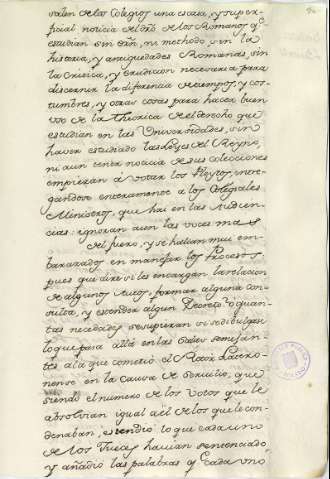 salen de los Colegios una escasa, y super-
ficial noticia del dro de los Romanos q.e
estudian sin orñ, ni methodo, sin la
historia, y antiguedades Romanas, sin
la critica, y erudicion necesaria para
discernir la diferencia de tiempos, y cos-
tumbres, y otras cosas para hacer buen
uso de la Theorica del derecho que
estudian en las Universidades, sin
haver estudiado las Leyes del Reyno,
ni aun tener noticia de sus colecciones
empiezan á votar los Pleytos, incor-
enteramente a los Colegiales
Ministros, que hai en las Audien-
cias: ignoran aun las voces mas
del fuero, y se hallan mui em-
barazados en manejar los Procesos
pues que diré si les encargan la relacion
de algunos Autos, formar alguna con-
sulta, y estender algun Decreto? o quan-
tas necedades se supieran si se divulgara
lo que pasa allá en las Salas semejan-
tes a la que cometió el
en la Causa de que
siendo el numero de los Votos que le
absolvian igual a el de los que le con-
denaban, estendió lo que cada uno
de los Jueces havian sentenciado,
y añadió las palabras q Cada uno